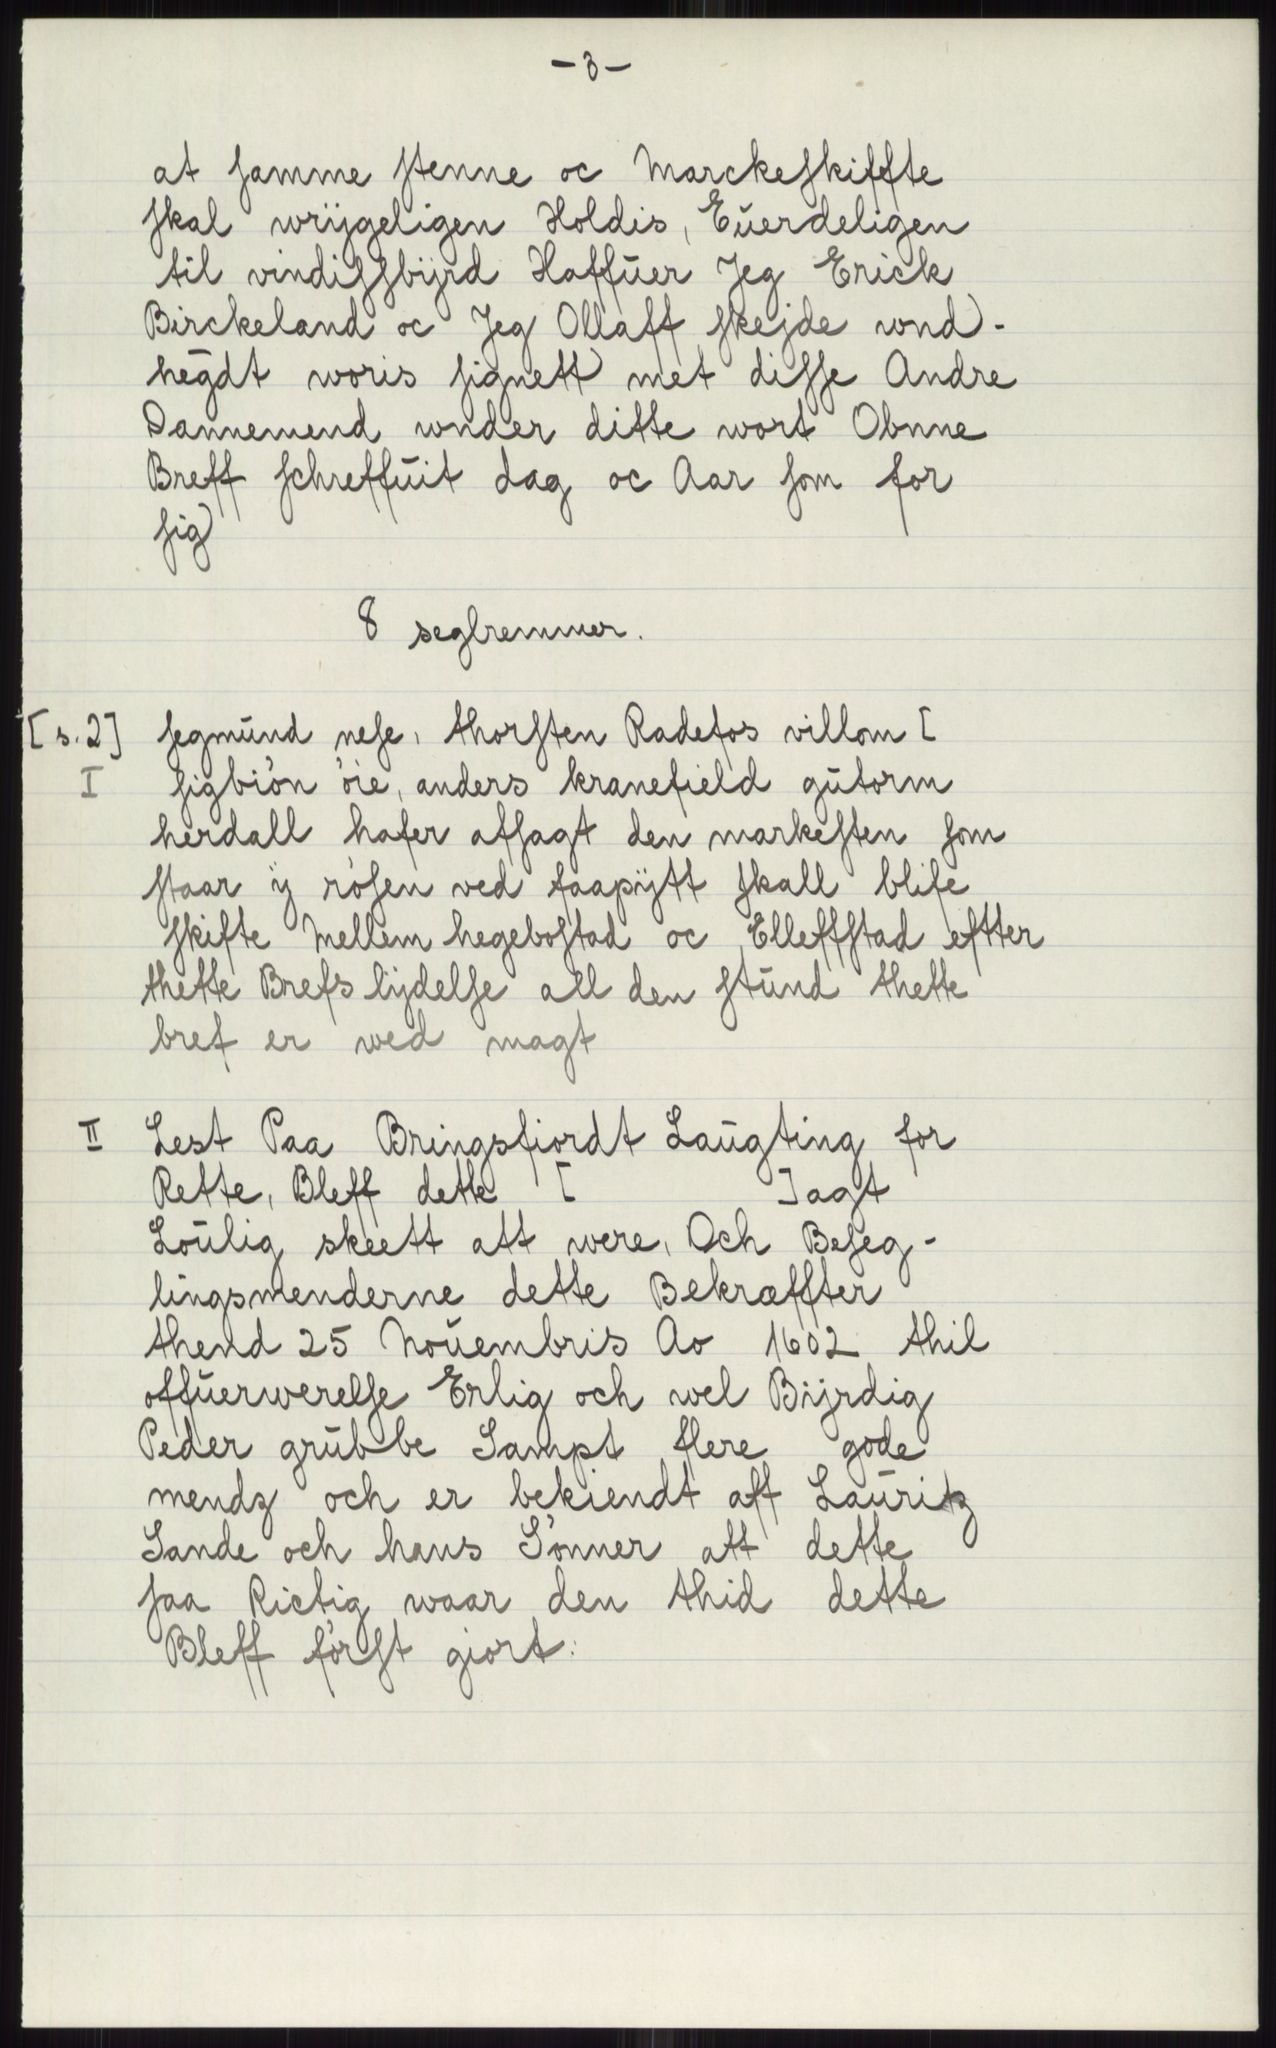 -3-
at samme stenne oc Marckeskiffte
skal wrijgeligen Holdis, Eũerdeligen
til vindissbijrd Haffũer Jeg Erick
Birckeland oc Jeg Ollaff skejde wnd-
hēgdt woris signett met disse Andre
Dannemend wnder ditte wort Obnne
Breff schreffũit dag oc Aar som for
sig
8 seglremmer.
[s.2] segmũnd nese, thorsten Radefos villom [
I sigbiön öie, anders kranefield gũtorm
herdall hafer afsagt den markesten som
staar ÿ rösen ved faapÿtt skall blife
skifte Mellem hegebostad oc Elleffstad efter
thette Brefs lÿdelse all den stũnd thette
bref er wed magt
II Lest Paa Bringsfiordt Laũgting for
Rette, Bleff dette [ ]agt
Loũlig skeett att were, Och Beseg-
lingsmenderne dette Bekræffter
thend 25 Noũembris Ao 1602 thil
offũerwerelse Erlig och wel Bijrdig
Peder grũbbe Sampt flere gode
mendz och er bekiendt aff Laũritz
Sande och hans Sönner att dette
saa Rictig waar den thid dette
Bleff först giort: